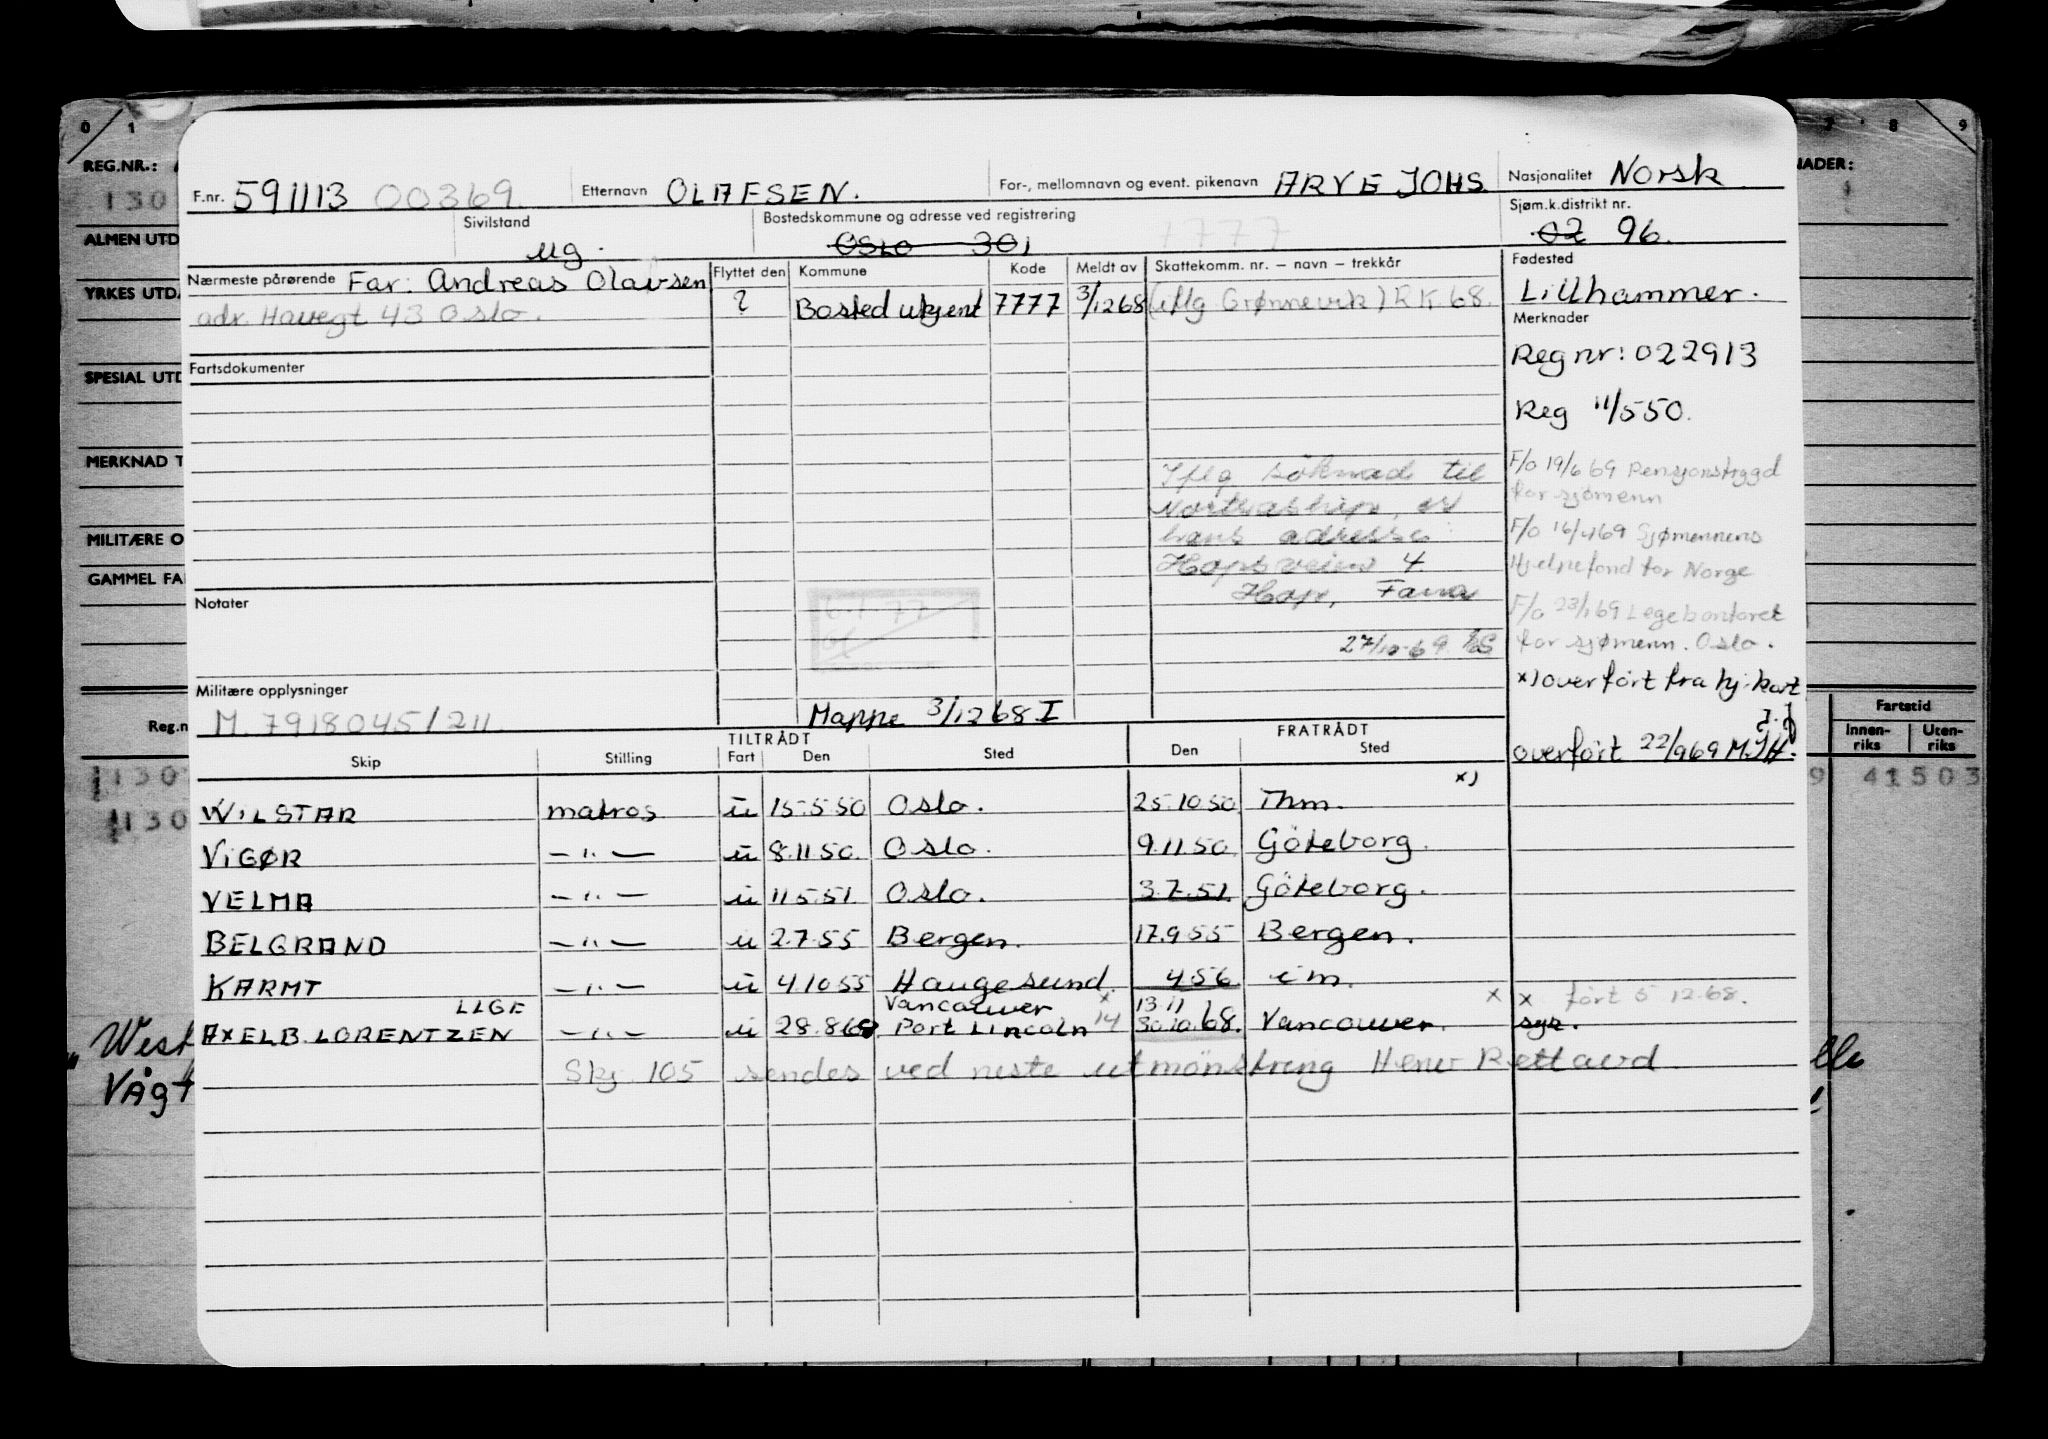 0 1 7 8 9
REG.NR.: NADER:
130
F.nr. 591113 00369 Etternavn OLAFSEN. For-, mellomnavn og event. pikenavn ARVE JOHS Nasjonalitet Norsk
ALMEN UTD
Sivilstand ug. Bostedskommune og adresse ved registrering Oslo 301 7777 Sjøm.k.distrikt nr. 02 96.
Nærmeste pårørende Far: Andreas Olavsen Flyttet den Kommune Kode Meldt av Skattekomm. nr. – navn – trekkår Fødested
adr. Havegt 43 Oslo. ? Bosted ukjent 7777 3/12 68 Grønnevik) RK 68. Lillhammer.
YRKES UTD
Merknader
Reg nr: 022913
Fartsdokumenter
SPESIAL UTD
Reg 11/5 50.
MERKNAD T
Iflg søknad til
Nortraship, er
hans adresse:
Hopsveien 4
Hop, Fana
27/10-69
F/o 19/6 69 Pensjonstrygd
for sjømenn
F/o 16/4 69 Sjømennens
Hjelpefond for Norge
F/o 23/1 69 Legekontoret
for sjømenn. Oslo.
x) overført fra hj. kort
overført 22/9 69 M.JH.
MILITÆRE O
GAMMEL FA
Notater
6.1.77
Militære opplysninger
M. 7918045/211 Mappe 3/12 68 I
Reg.n
Fartstid
Innen-riks Uten-riks
TILTRÅDT FRATRÅDT
Skip Stilling Fart Den Sted Den Sted
x)
130 9 41503
WILSTAR matros u 15.5.50 Oslo. 25.10 50 Thm.
130
VIGØR —"— u 8.11 50. Oslo. 9.11 50 Göteborg.
VELMA —"— u 11 5.51. Oslo. 3.7.51. Göteborg.
BELGRAND —"— u 2.7.55 Bergen. 17.9 55 Bergen.
KARMT —"— u 4.10 55 Haugesund. 4.56 im.
LLGE Vancouver x 13 11 x x ført 5 12.68.
AXEL B. LORENTZEN —"— u 28.8 68 Port Lincoln 14 30.10.68. Vancouver. syk.
Skj. 105 sendes ved neste utmönstring
West
Vågt